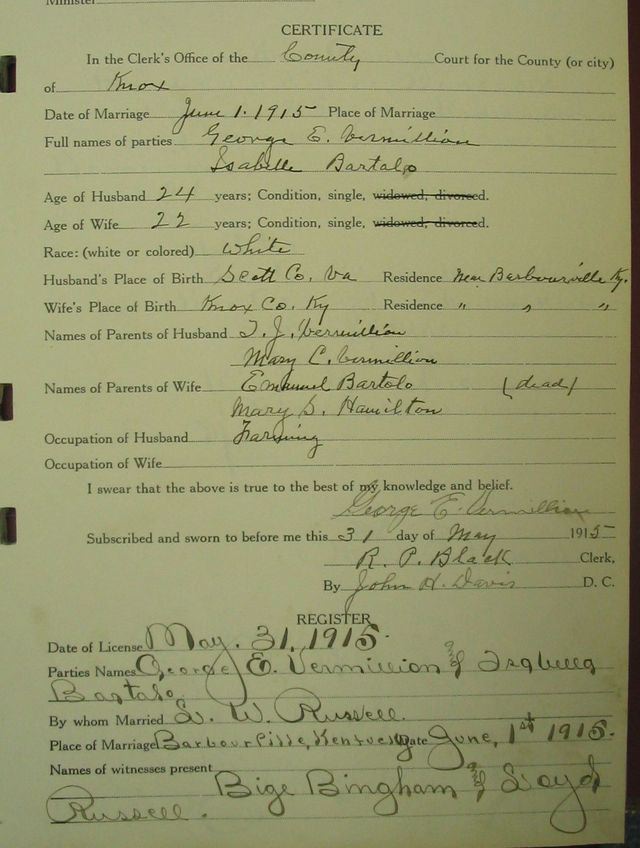 Minister
CERTIFICATE
In the Clerk's Office of the County Court for the County (or city)
of Knox
Date of Marriage June 1. 1915 Place of Marriage
Full names of parties George E. Vermillion
Isabelle Bartalo
Age of Husband 24 years; Condition, single, widowed, divorced.
Age of Wife 22 years; Condition, single, widowed, divorced.
Race: (white or colored) White
Husband's Place of Birth Scott Co. Va Residence Near Barbourville Ky.
Wife's Place of Birth Knox Co. Ky Residence " " "
Names of Parents of Husband T. J. Vermillion
Mary C. Vermillion
Names of Parents of Wife Emanuel Bartolo (dead)
Mary S. Hamilton
Occupation of Husband Farming
Occupation of Wife
I swear that the above is true to the best of my knowledge and belief.
George E. Vermillion
Subscribed and sworn to before me this 31 day of May 1915
R. P. Black Clerk,
By John H. Davis D. C.
REGISTER
Date of License May. 31. 1915.
Parties Names George E. Vermillion & Isabella
Bartalo
By whom Married W. Russell.
Place of Marriage Barbourville, Kentucky Date June, 1st 1915.
Names of witnesses present Bige Bingham & Loyd
Russell.